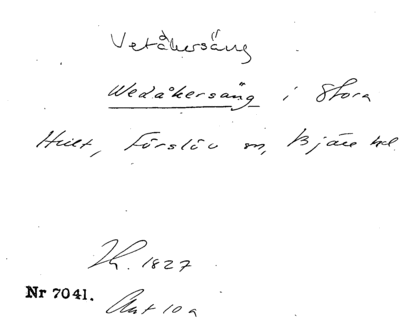 Vetåkersäng
Wedåkersäng i Stora
Hult, Förslöv sn, Bjäre hd
1827
Nr 7041.
Akt 10a